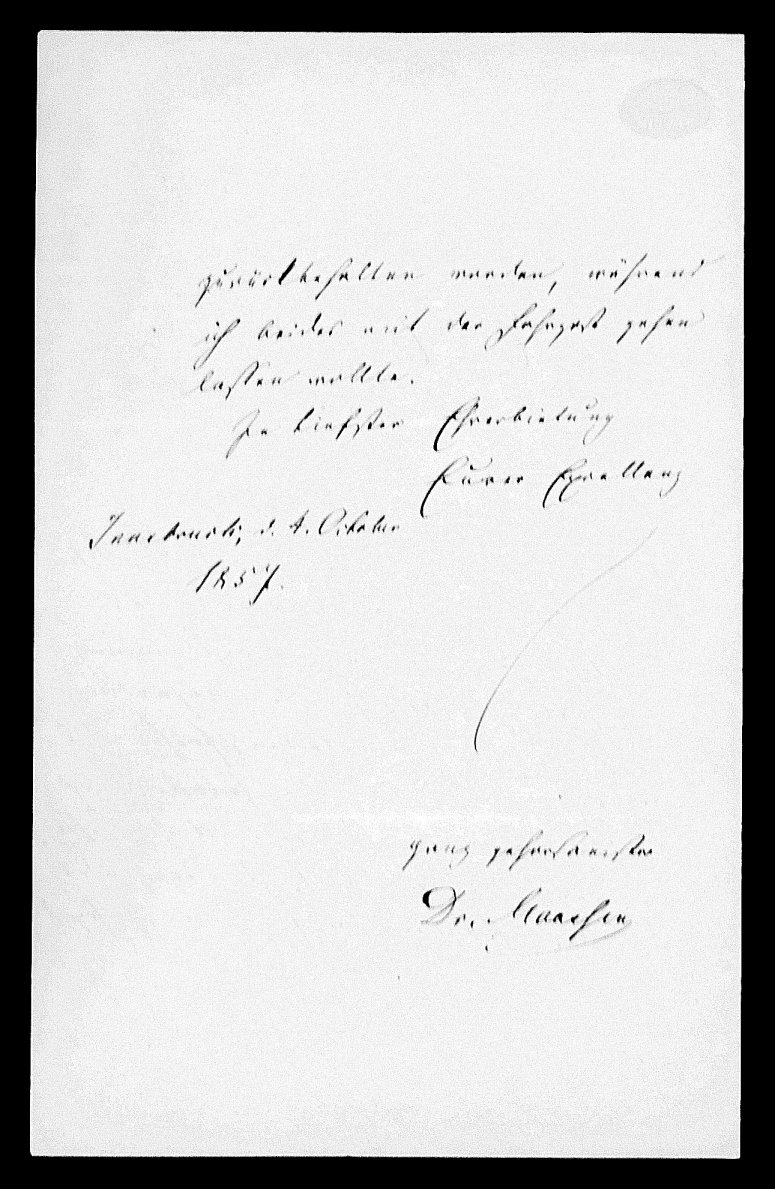 zurückbehalten worden, während
ich beides mit der Fahrpost gehen
lassen wollte.
In tiefster Ehrerbietung
Eurer Excellenz
Innsbruck, d. 4. October
1857.
ganz gehorsamster
Dr.